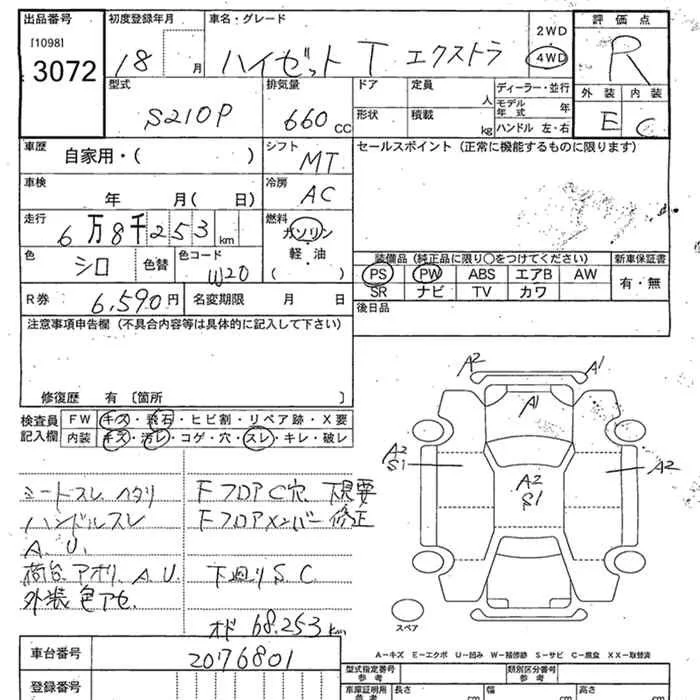 出品番号 初度登録年月 車名・グレード 評価点
[1098]
3072
18 月 ハイゼット T エクストラ 2WD 4WD R
外装 内装
E C
型式 排気量 ドア 定員 人 ディーラー・並行
S210P 660 CC 形状 積載 kg モデル年式 年
ハンドル 左・右
車歴 自家用・( ) シフト MT セールスポイント (正常に機能するものに限ります)
車検 年 月( 日) 冷房 AC
走行 6万8千253 km 燃料 ガソリン
軽・油
( )
色 シロ 色替 色コード W20
装備品 (純正品に限り○をつけてください) 新車保証書
PS PW ABS エアB AW 有・無
SR ナビ TV カワ
R券 6,590円 名変期限 月 日 後日品
注意事項申告欄 (不具合内容等は具体的に記入して下さい)
修復歴 有 〔箇所 〕
検査員記入欄 FW キズ・飛石・ヒビ割・リペア跡・X要
内装 キズ・汚レ・コゲ・穴・スレ・キレ・破レ
シートスレ ヘタリ FフロアC穴 下見要
ハンドルスレ Fフロアメンバー修正
A.U.
荷台 アオリ A.U. 下廻りS.C
外装色アセ
オド 68.253 km
A2 A1
A1
A2
S1
A2
S1
A2
スペア
A−キズ E−エクボ U−凹ミ W−補修跡 S−サビ C−腐食 XX−取替済
車台番号 2076801
型式指定番号 参考 類別区分番号 参考
登録番号
車庫証明用 参考 長さ cm 幅 cm 高さ cm